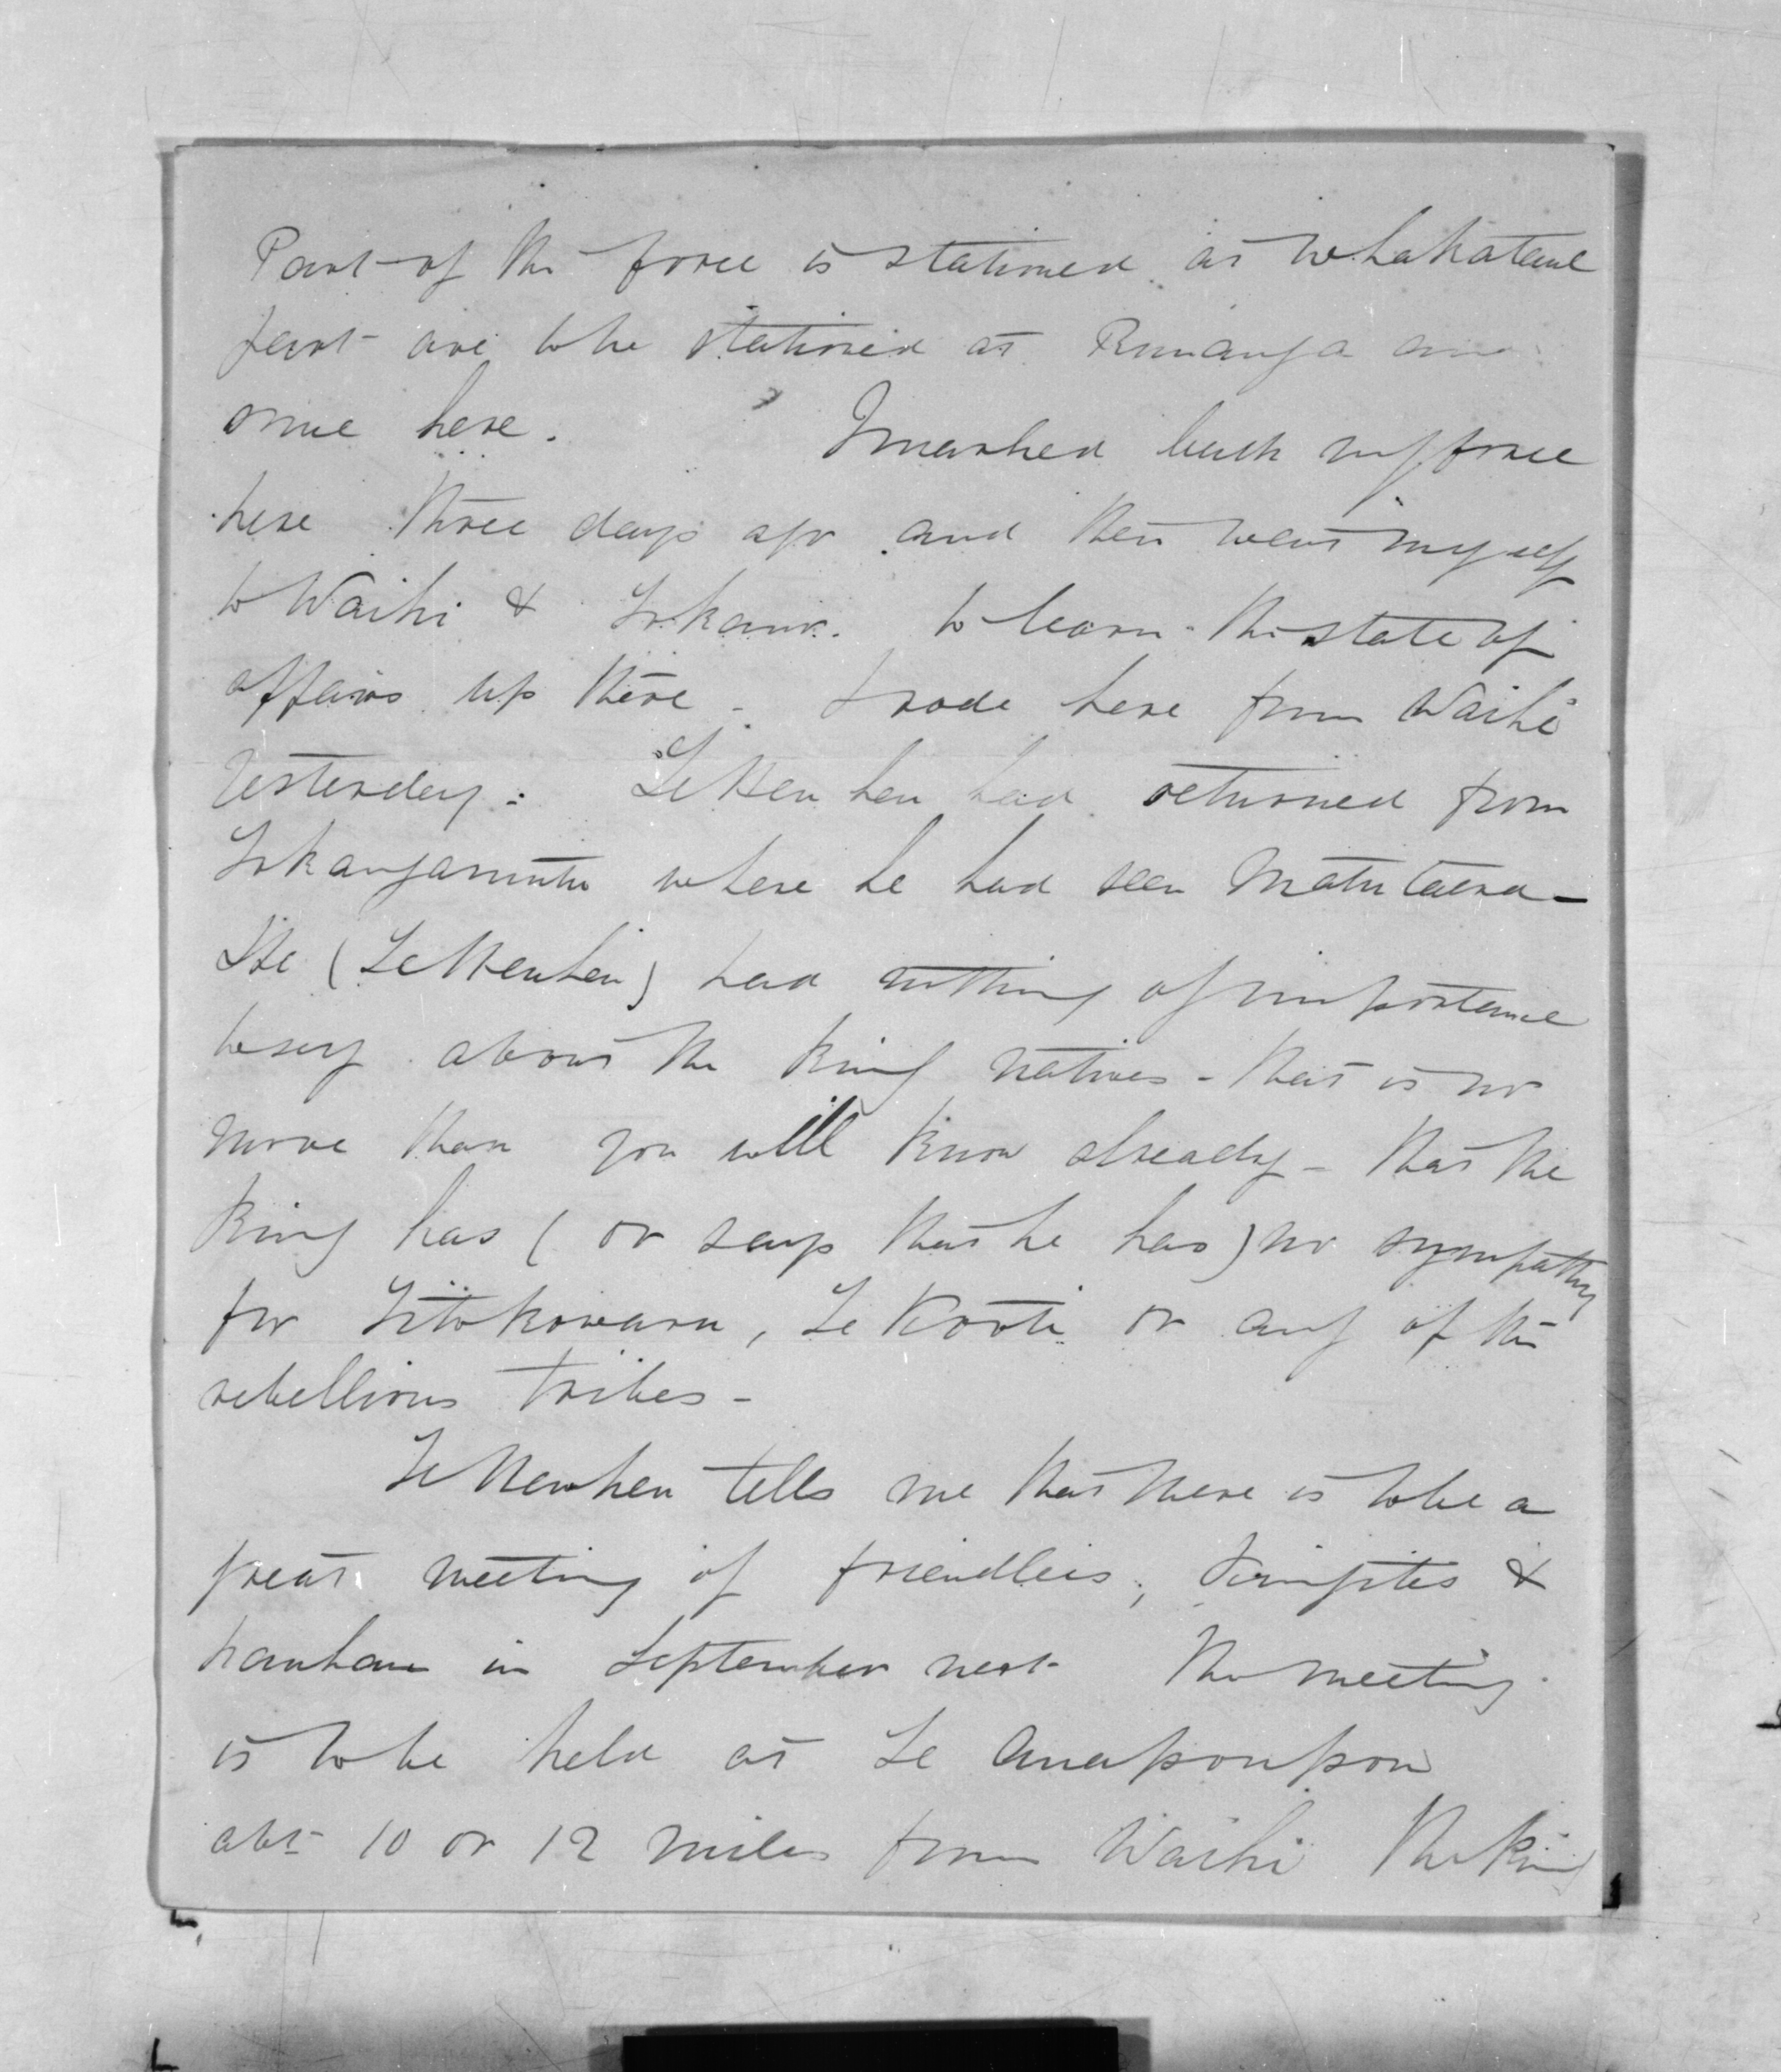 Part of the force is stationed at Whakatane
part are to be stationed at Runanga and
some here. I marched back my force
here three days ago and then went myself
to Waihi & Tokanu to learn the state of
affairs up there - I rode here from Waihi
yesterday: Te Heu heu had returned from
Tokangamutu where he had seen Matutaera -
He (Te Heuheu) had nothing of importance
to say about the King natives - that is no
more than you will know already - that the
King has (or says that he has) no sympathy
for Titokowaru, Te Kooti or any of the
rebellious tribes -
Te Heuheu tells me that there is to be a
great meeting of friendlies, Kingites &
hauhaus in September next The meeting
is to be held at Te
abt 10 or 12 miles from Waihi The King